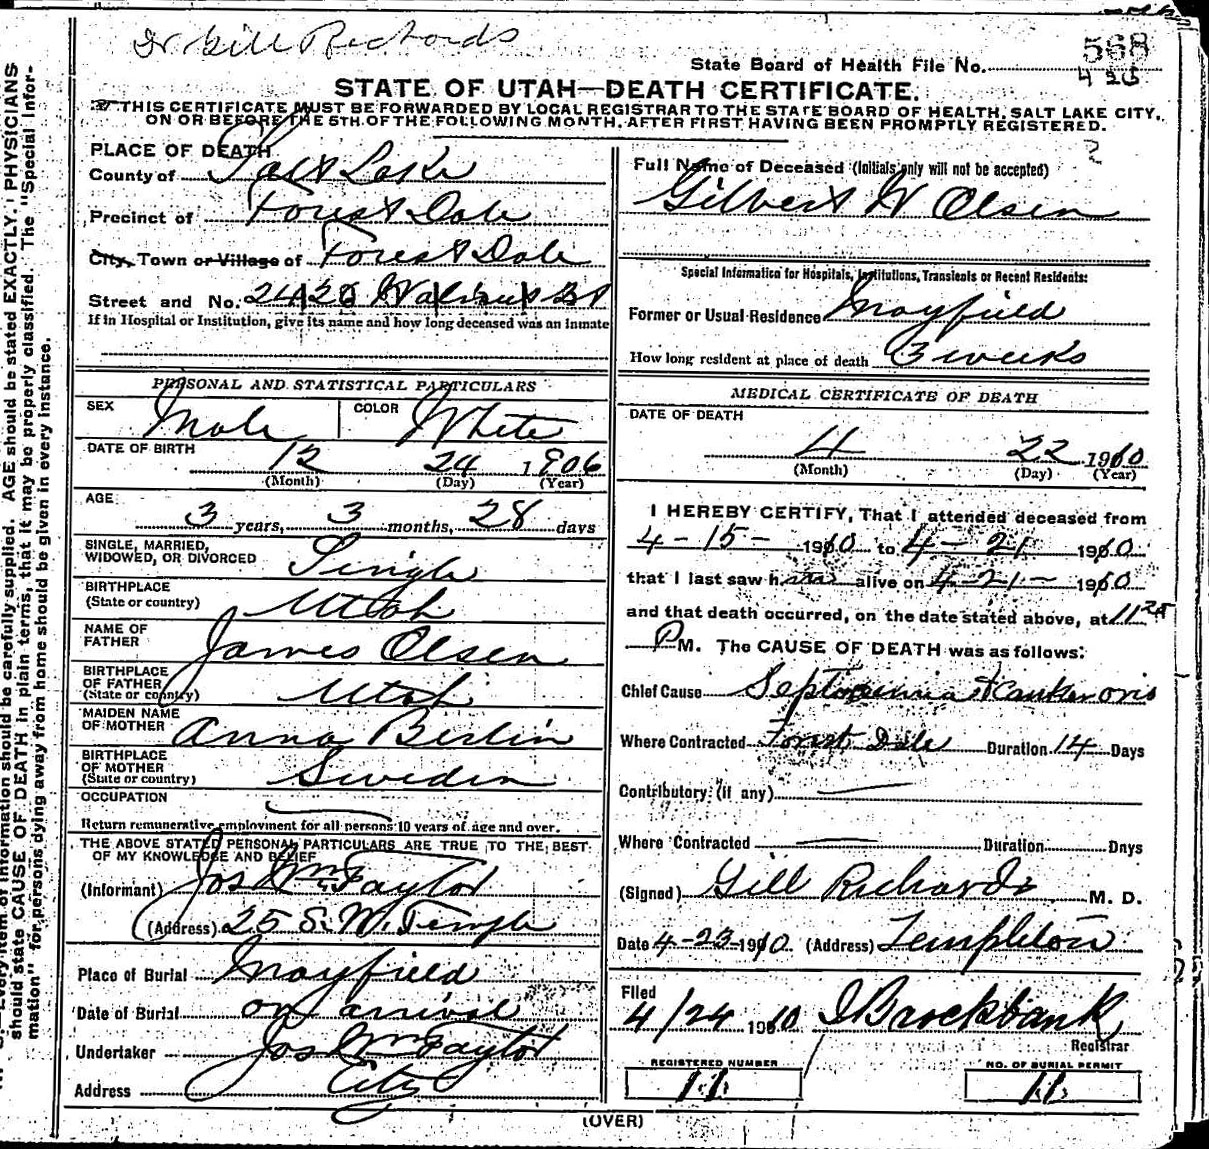 Dr Gill Richards
568
State Board of Health File No.
STATE OF UTAH—DEATH CERTIFICATE.
THIS CERTIFICATE MUST BE FORWARDED BY LOCAL REGISTRAR TO THE STATE BOARD OF HEALTH, SALT LAKE CITY,
ON OR BEFORE THE 5TH OF THE FOLLOWING MONTH, AFTER FIRST HAVING BEEN PROMPTLY REGISTERED.
PLACE OF DEATH
County of Salt Lake
Precinct of Forest Dale
City, Town or Village of Forest Dale
Street and No. 2426 Walnut St
If in Hospital or Institution, give its name and how long deceased was an inmate
PERSONAL AND STATISTICAL PARTICULARS
SEX Male COLOR White
DATE OF BIRTH 12 24 1906
(Month) (Day) (Year)
AGE
3 years, 3 months, 28 days
SINGLE, MARRIED,
WIDOWED, OR DIVORCED Single
BIRTHPLACE
(State or country) Utah
NAME OF
FATHER James Olsen
BIRTHPLACE
OF FATHER
(State or country) Utah
MAIDEN NAME
OF MOTHER Anna Berlin
BIRTHPLACE
OF MOTHER
(State or country) Sweden
OCCUPATION
Return remunerative employment for all persons 10 years of age and over.
THE ABOVE STATED PERSONAL PARTICULARS ARE TRUE TO THE BEST
OF MY KNOWLEDGE AND BELIEF
(Informant) Jos Wm Taylor
(Address) 25 S. W. Temple
Place of Burial Mayfield
Date of Burial on arrival
Undertaker Jos Wm Taylor
Address City
Full Name of Deceased (Initials only will not be accepted)
Gilbert W Olsen
Special Information for Hospitals, Institutions, Transients or Recent Residents:
Former or Usual Residence Mayfield
How long resident at place of death 3 weeks
MEDICAL CERTIFICATE OF DEATH
DATE OF DEATH
4 22 1910
(Month) (Day) (Year)
I HEREBY CERTIFY, That I attended deceased from
4-15- 1910 to 4-21 1910
that I last saw him alive on 4-21- 1910
and that death occurred, on the date stated above, at 11 25
P M. The CAUSE OF DEATH was as follows:
Chief Cause Septicemia
Where Contracted Forest Dale Duration 14 Days
Contributory (if any)
Where Contracted Duration Days
(Signed) Gill Richards M. D.
Date 4-23-1910. (Address) Templeton
Filed
4/24 1910 J Brockbank
Registrar
REGISTERED NUMBER
11
NO. OF BURIAL PERMIT
11
(OVER)
should state CAUSE OF DEATH in plain terms, that it may be properly classified. The "Special Infor-
mation" for persons dying away from home should be given in every instance.